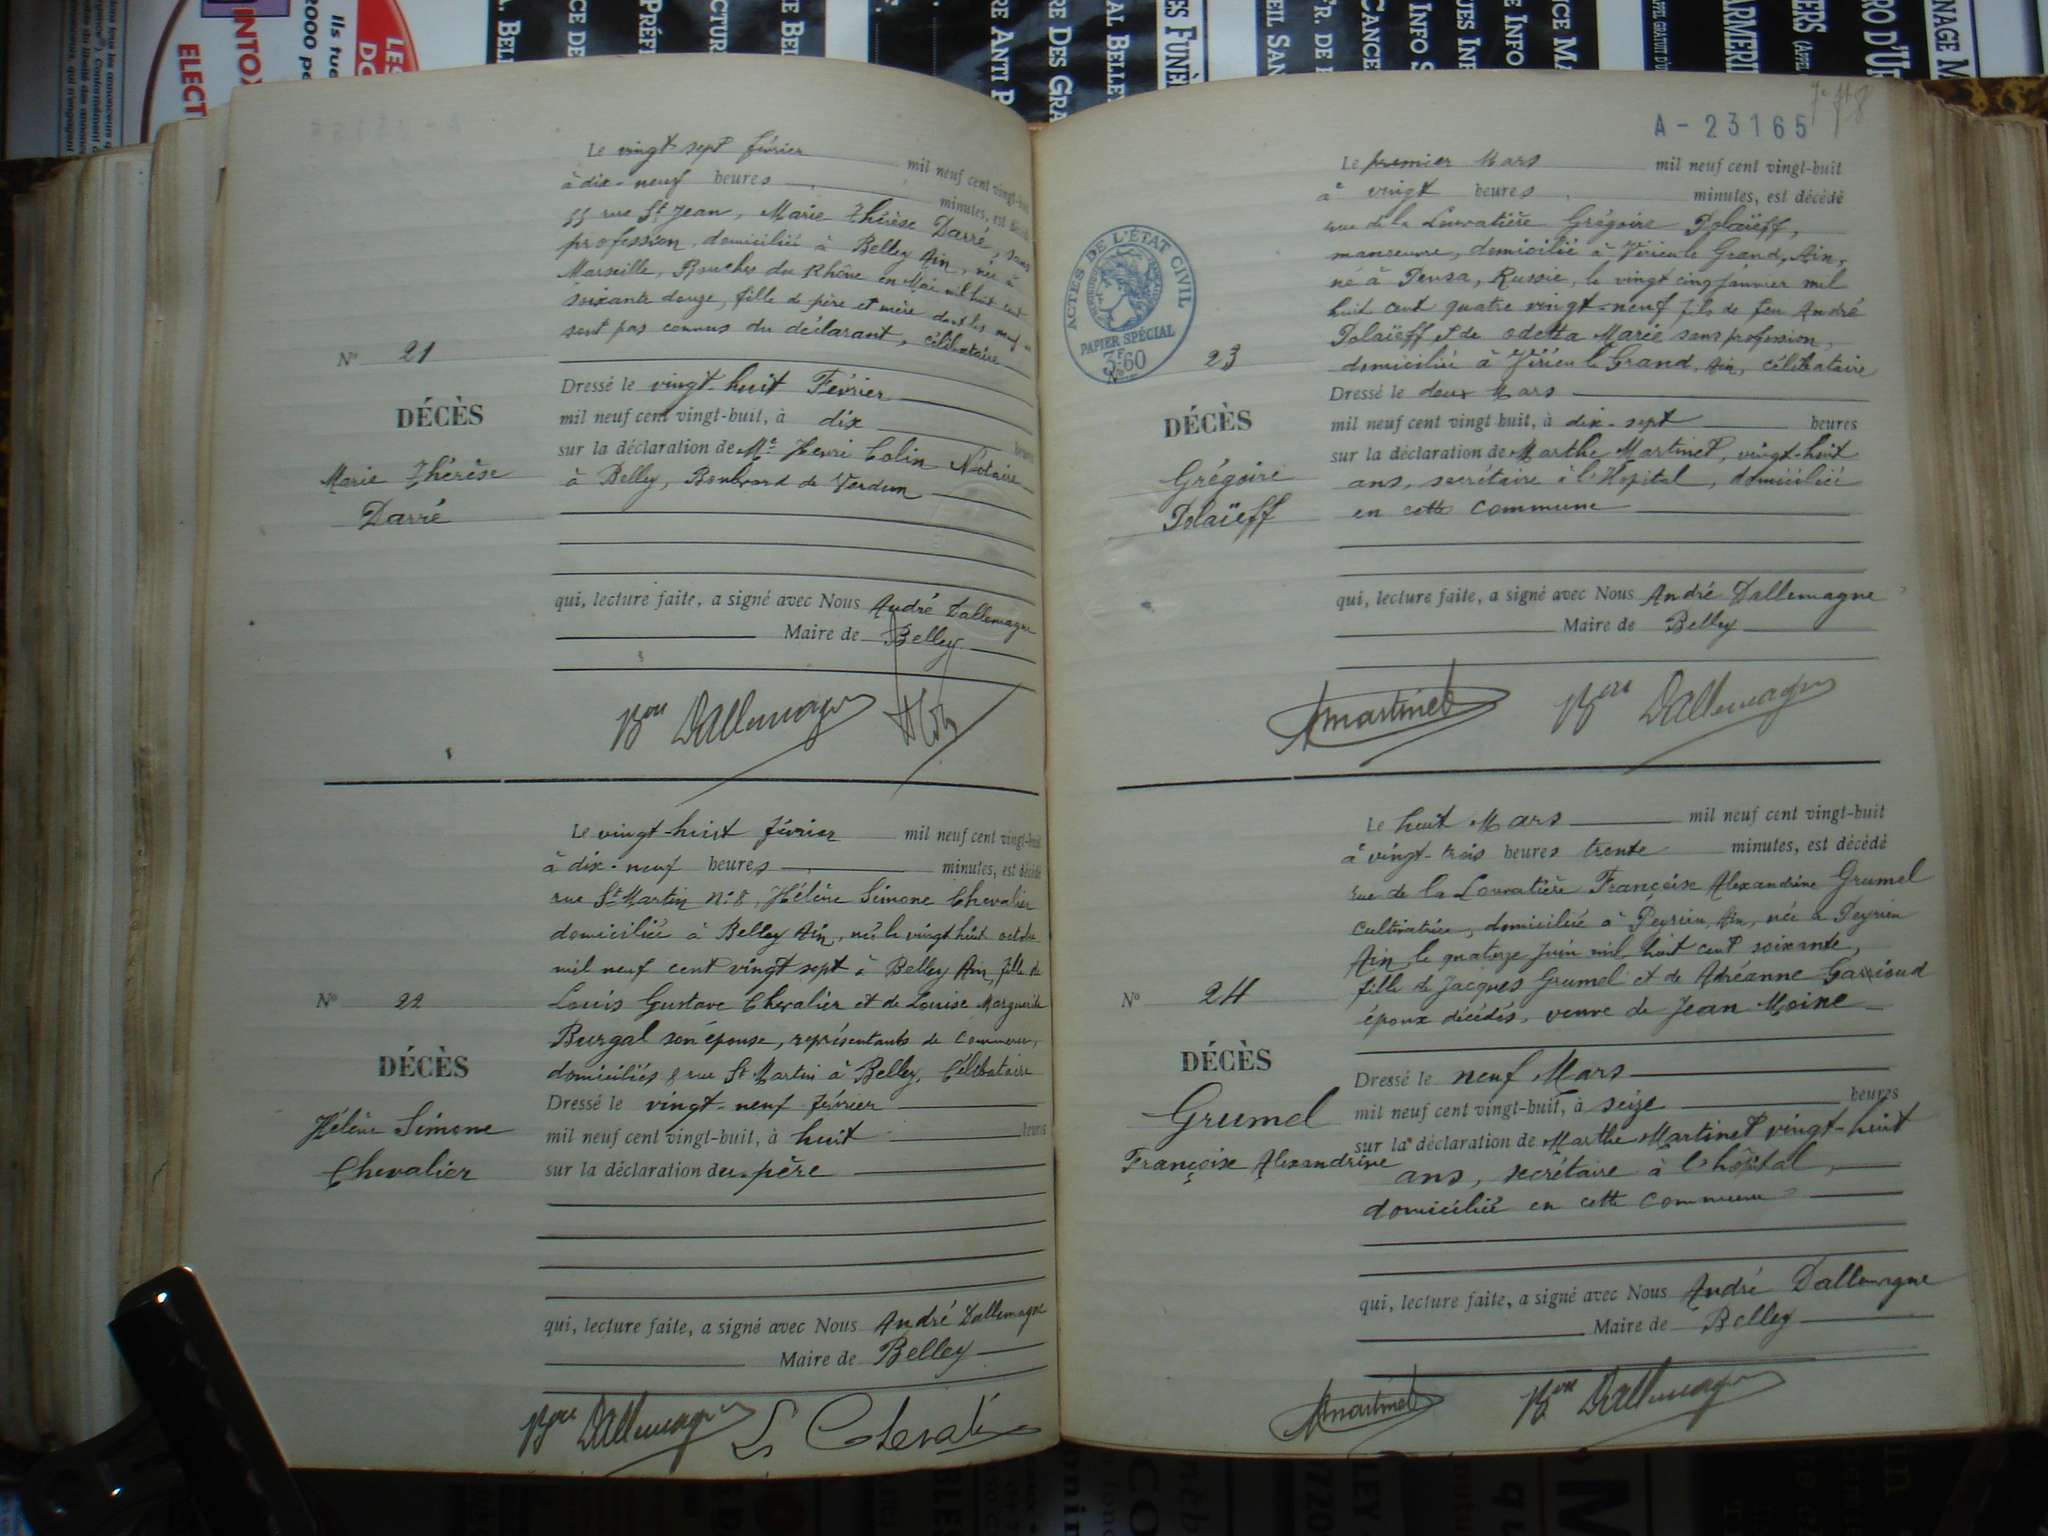 Le vingt-sept février mil neuf cent vingt-huit
à dix-neuf heures minutes, est décédé
55 rue St Jean, Marie Thérèse Darré, sans
profession, domiciliée à Belley Ain, née à
Marseille, Bouches du Rhône en Mai mil huit cent
soixante douze, fille de père et mère dont les noms ne
sont pas connus du déclarant, célibataire
N° 21
Dressé le vingt huit Février
DÉCÈS
mil neuf cent vingt-huit, à dix heures
sur la déclaration de Me Henri Colin Notaire
Marie Thérèse
à Belley, Boulevard de Verdun
Darré
qui, lecture faite, a signé avec Nous André Dallemagne
Maire de Belley
Bon Dallemagne
Le vingt-huit février mil neuf cent vingt-huit
à dix-neuf heures minutes, est décédé
rue St Martin n° 8, Hélène Simone Chevalier
domiciliée à Belley Ain, née le vingt huit octobre
mil neuf cent vingt sept à Belley Ain, fille de
N° 22
Louis Gustave Chevalier et de Louise Marguerite
Burgal son épouse, représentants de commerce,
DÉCÈS
domiciliés 8 rue St Martin à Belley, Célibataire
Dressé le vingt-neuf février
Hélène Simone
mil neuf cent vingt-huit, à huit heures
Chevalier
sur la déclaration du père
qui, lecture faite, a signé avec Nous André Dallemagne
Maire de Belley
Bon Dallemagne L Chevalier
78
A - 23165
Le premier Mars mil neuf cent vingt-huit
à vingt heures minutes, est décédé
rue de la Louvatière Grégoire Polaïeff,
manœuvre, domicilié à Virieu le Grand, Ain,
né à Pensa, Russie, le vingt cinq janvier mil
huit cent quatre vingt-neuf fils de feu André
Polaïeff et de Odetta Marie sans profession,
domiciliée à Virieu le Grand, Ain, célibataire
ACTES DE L'ÉTAT CIVIL
PAPIER SPÉCIAL
3F60
N° 23
Dressé le deux Mars
DÉCÈS
mil neuf cent vingt huit, à dix-sept heures
sur la déclaration de Marthe Martinet, vingt-huit
Grégoire
ans, secrétaire à l'Hopital, domiciliée
Polaïeff
en cette commune
qui, lecture faite, a signé avec Nous André Dallemagne
Maire de Belley
Martinet Bon Dallemagne
Le huit Mars mil neuf cent vingt-huit
à vingt-trois heures trente minutes, est décédé
rue de la Louvatière Françoise Alexandrine Grumel
cultivatrice, domiciliée à Peyrieu, Ain, née à Peyrieu
Ain le quatorze juin mil huit cent soixante,
fille de Jacques Grumel et de Adréanne Garrioud
N° 24
époux décédés, veuve de Jean Moine
DÉCÈS
Dressé le neuf Mars
mil neuf cent vingt-huit, à seize heures
Grumel
sur la déclaration de Marthe Martinet vingt-huit
Françoise Alexandrine
ans, secrétaire à l'hôpital,
domiciliée en cette commune
qui, lecture faite, a signé avec Nous André Dallemagne
Maire de Belley
Martinet Bon Dallemagne